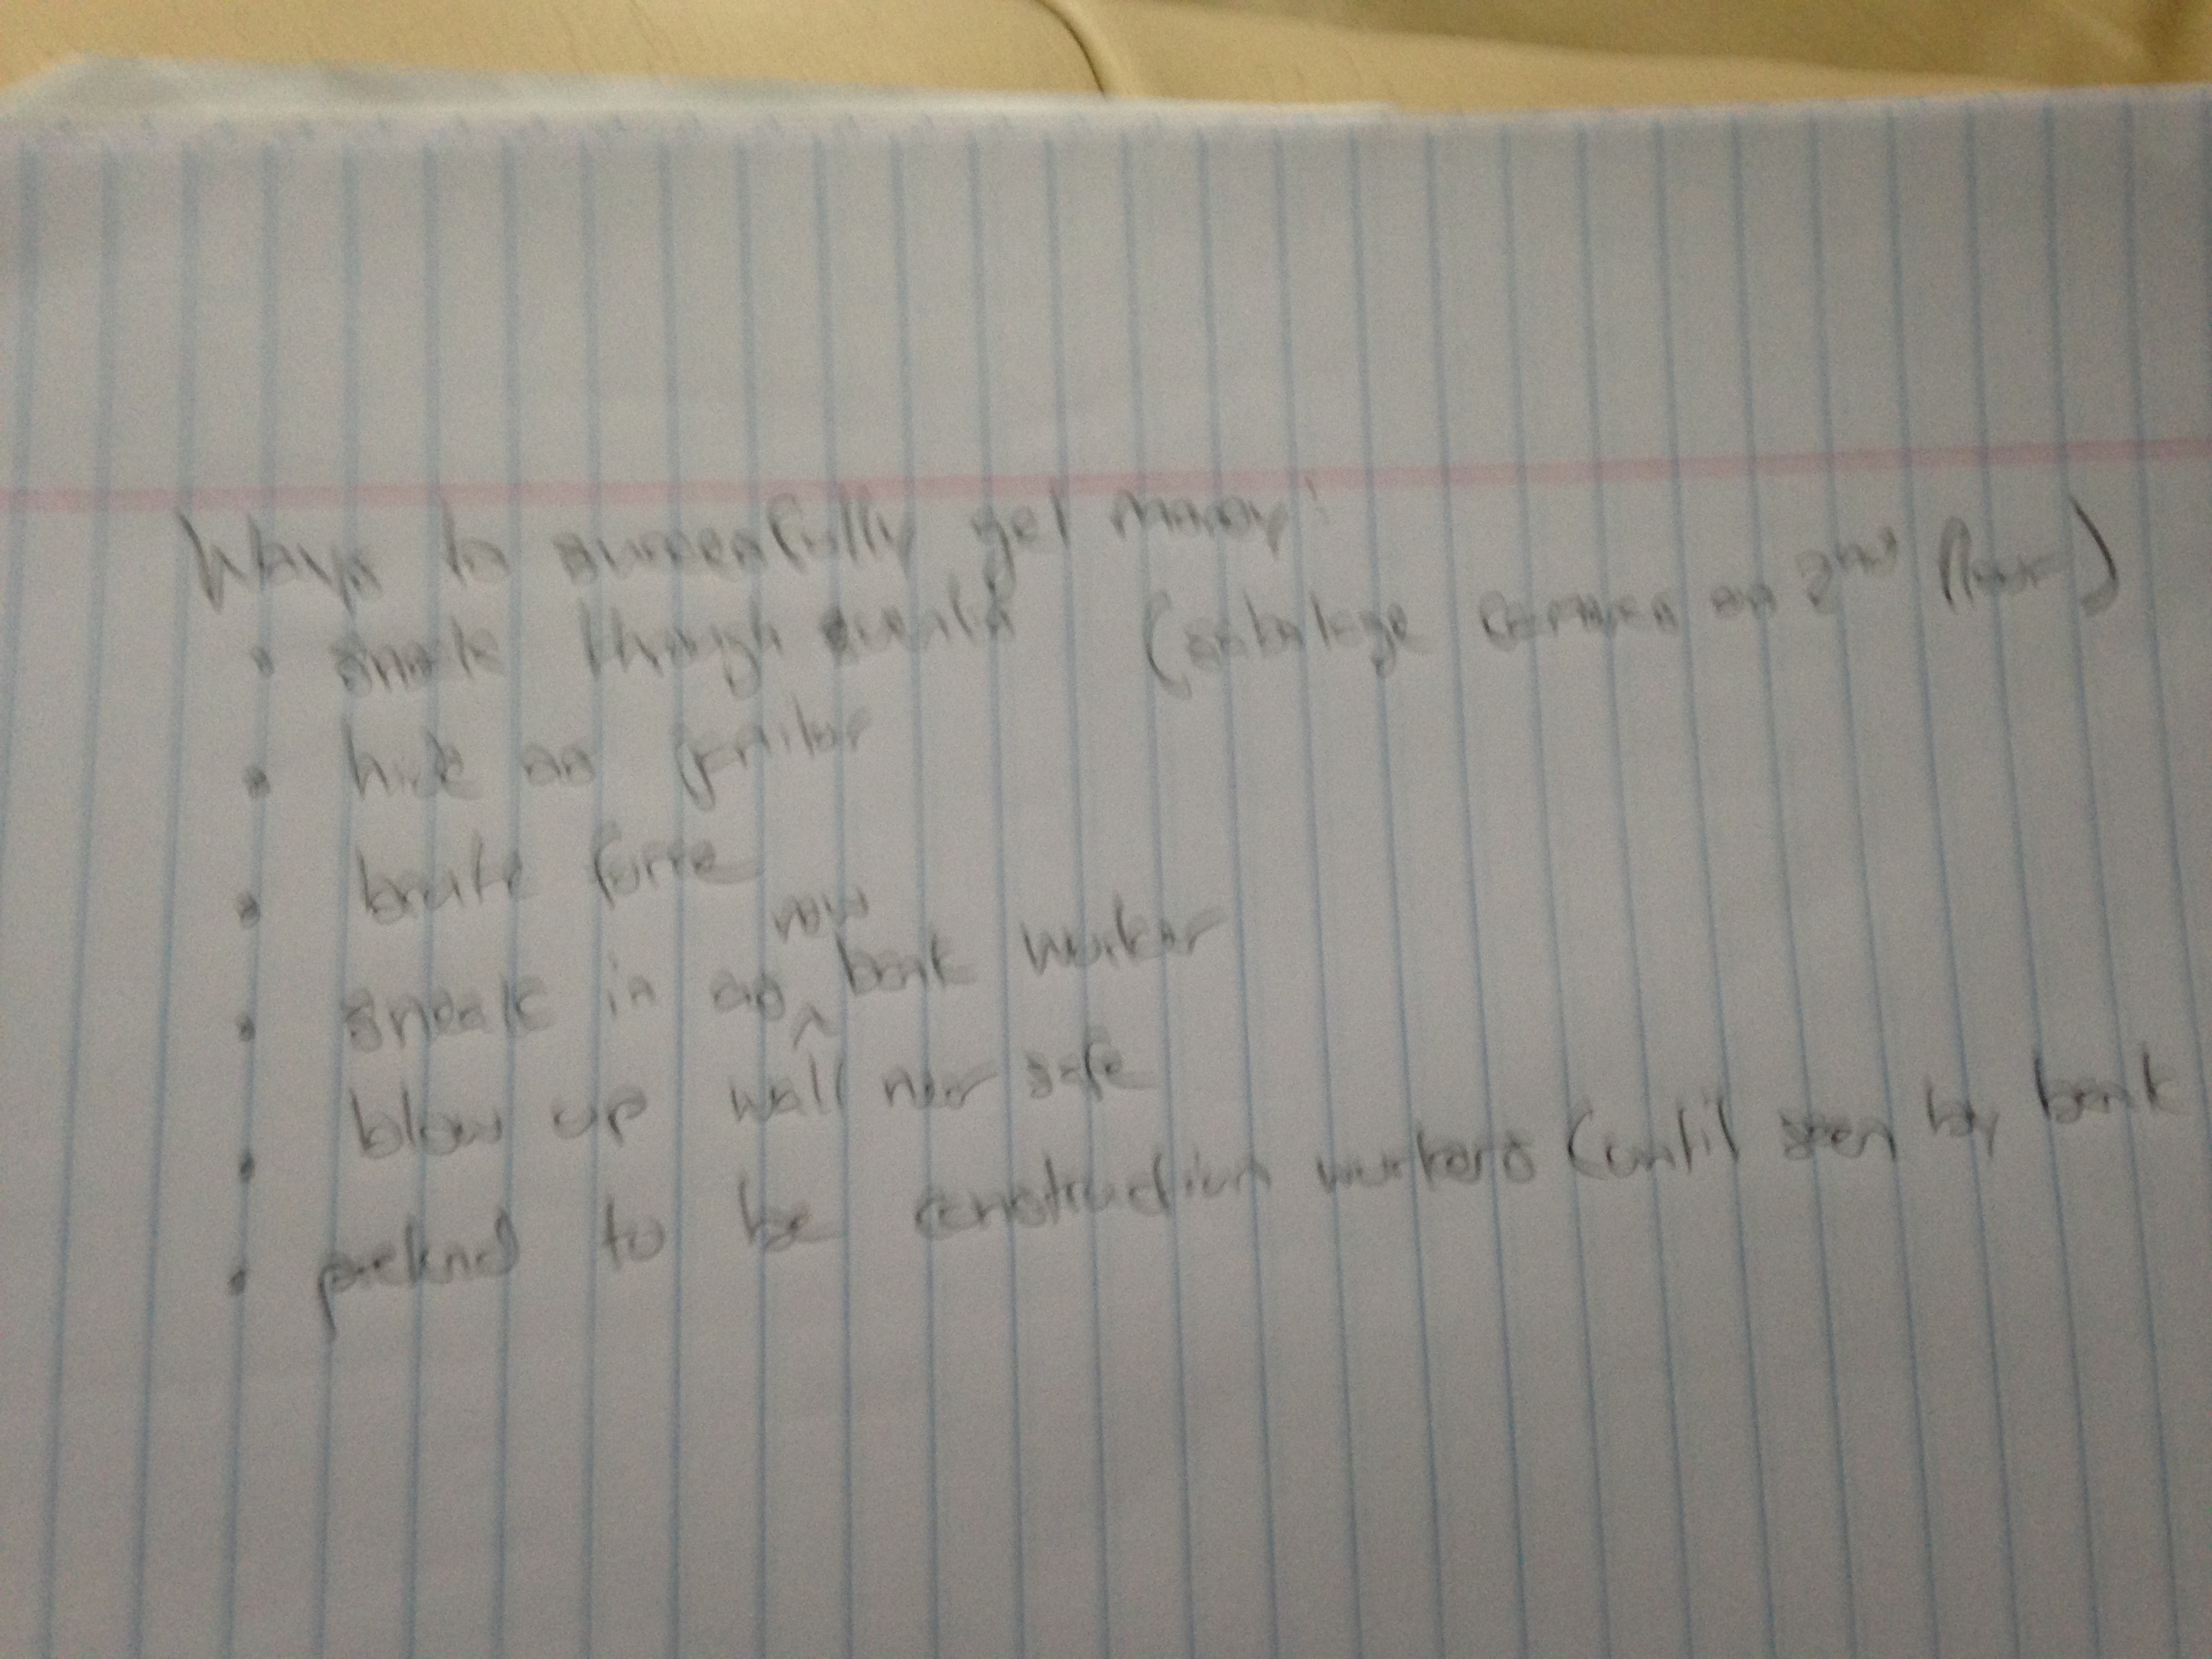 Ways to successfully get money:
• sneak through vents (sabotage cameras on 2nd floor)
• hide as janitor
• brute force
• sneak in as new bank worker
• blow up wall near safe
• pretend to be construction workers (until seen by bank